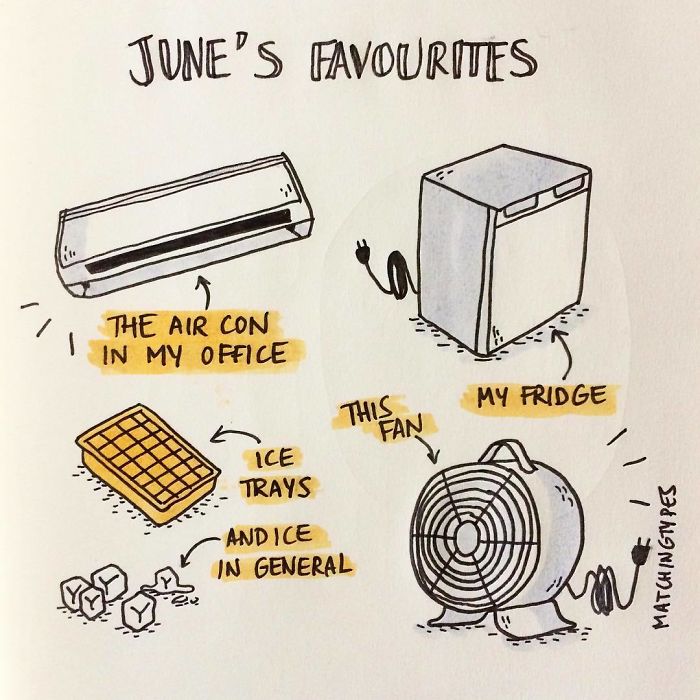 JUNE'S FAVOURITES
THE AIR CON
IN MY OFFICE
MY FRIDGE
THIS
FAN
ICE
TRAYS
AND ICE
IN GENERAL
MATCHINGTYPES